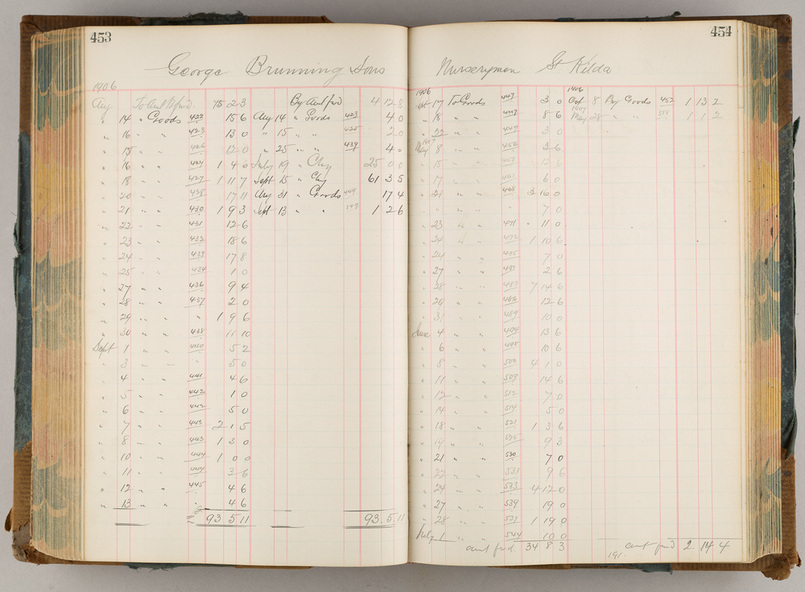 453
George Brunning Sons
1906
Aug To Amt fwd 75 2 3 By Amt fwd 4 12 8
" 14 " Goods 422 15 6 Aug 14 " Goods 423 4 0
" 16 " " 423 13 0 " 15 " " 2 0
" 15 " " 426 12 0 " 25 " " 434 4 0
" 16 " " 424 1 4 0 July 19 " Chq 25 0 0
" 18 " " 427 1 11 7 Sept 15 " Chq 61 3 5
" 20 " " 428 17 11 Aug 31 " Goods 17 4
" 21 " " 430 1 9 3 Sept 13 " " 1 2 6
" 22 " " 431 12 6
" 23 " " 432 18 6
" 24 " " 433 17 8
" 25 " " 434 1 0
" 27 " " 436 9 4
" 28 " " 437 2 0
" 29 " " 1 9 6
" 30 " " 438 11 10
Sept 1 " " 440 5 2
" 3 " " " 5 0
" 4 " " 441 4 6
" 5 " " 442 1 0
" 6 " " 442 5 0
" 7 " " 443 2 1 5
" 8 " " 443 1 3 0
" 10 " " 444 1 0 0
" 11 " " 444 3 6
" 12 " " 445 4 6
" 13 " " 4 6
93 5 11 93 5 11
454
Nurserymen St Kilda
1906 1906
Oct 17 To Goods 447 3 0 Oct 8 By Goods 452 1 13 2
" 18 " " 8 6 1907 May 28 " " 1 1 2
" 22 " " 3 0
1907
May 8 " " 3 6
" 15 " "
" 17 " " 6 0
" 21 " "
7 0
" 23 " " 11 0
" 24 " " 1 10 6
" 24 " " 7 0
" 27 " " 2 6
" 28 " " 7 14 6
" 29 " " 12 6
" 31 " " 10 0
June 4 " " 13 6
" 6 " " 10 6
" 5 " " 4 1 0
" 11 " " 509 14 6
" 12 " " 7 0
" 14 " " 5 0
" 18 " " 521 1 3 6
" 19 " " 9 3
" 21 " " 530 7 0
" 22 " " 531 9 6
" 24 " " 533 4 12 0
" 27 " " 539 19 0
" 28 " " 1 19 0
July 1 " " 544 10 0
amt fwd 34 8 3 amt fwd 2 14 4